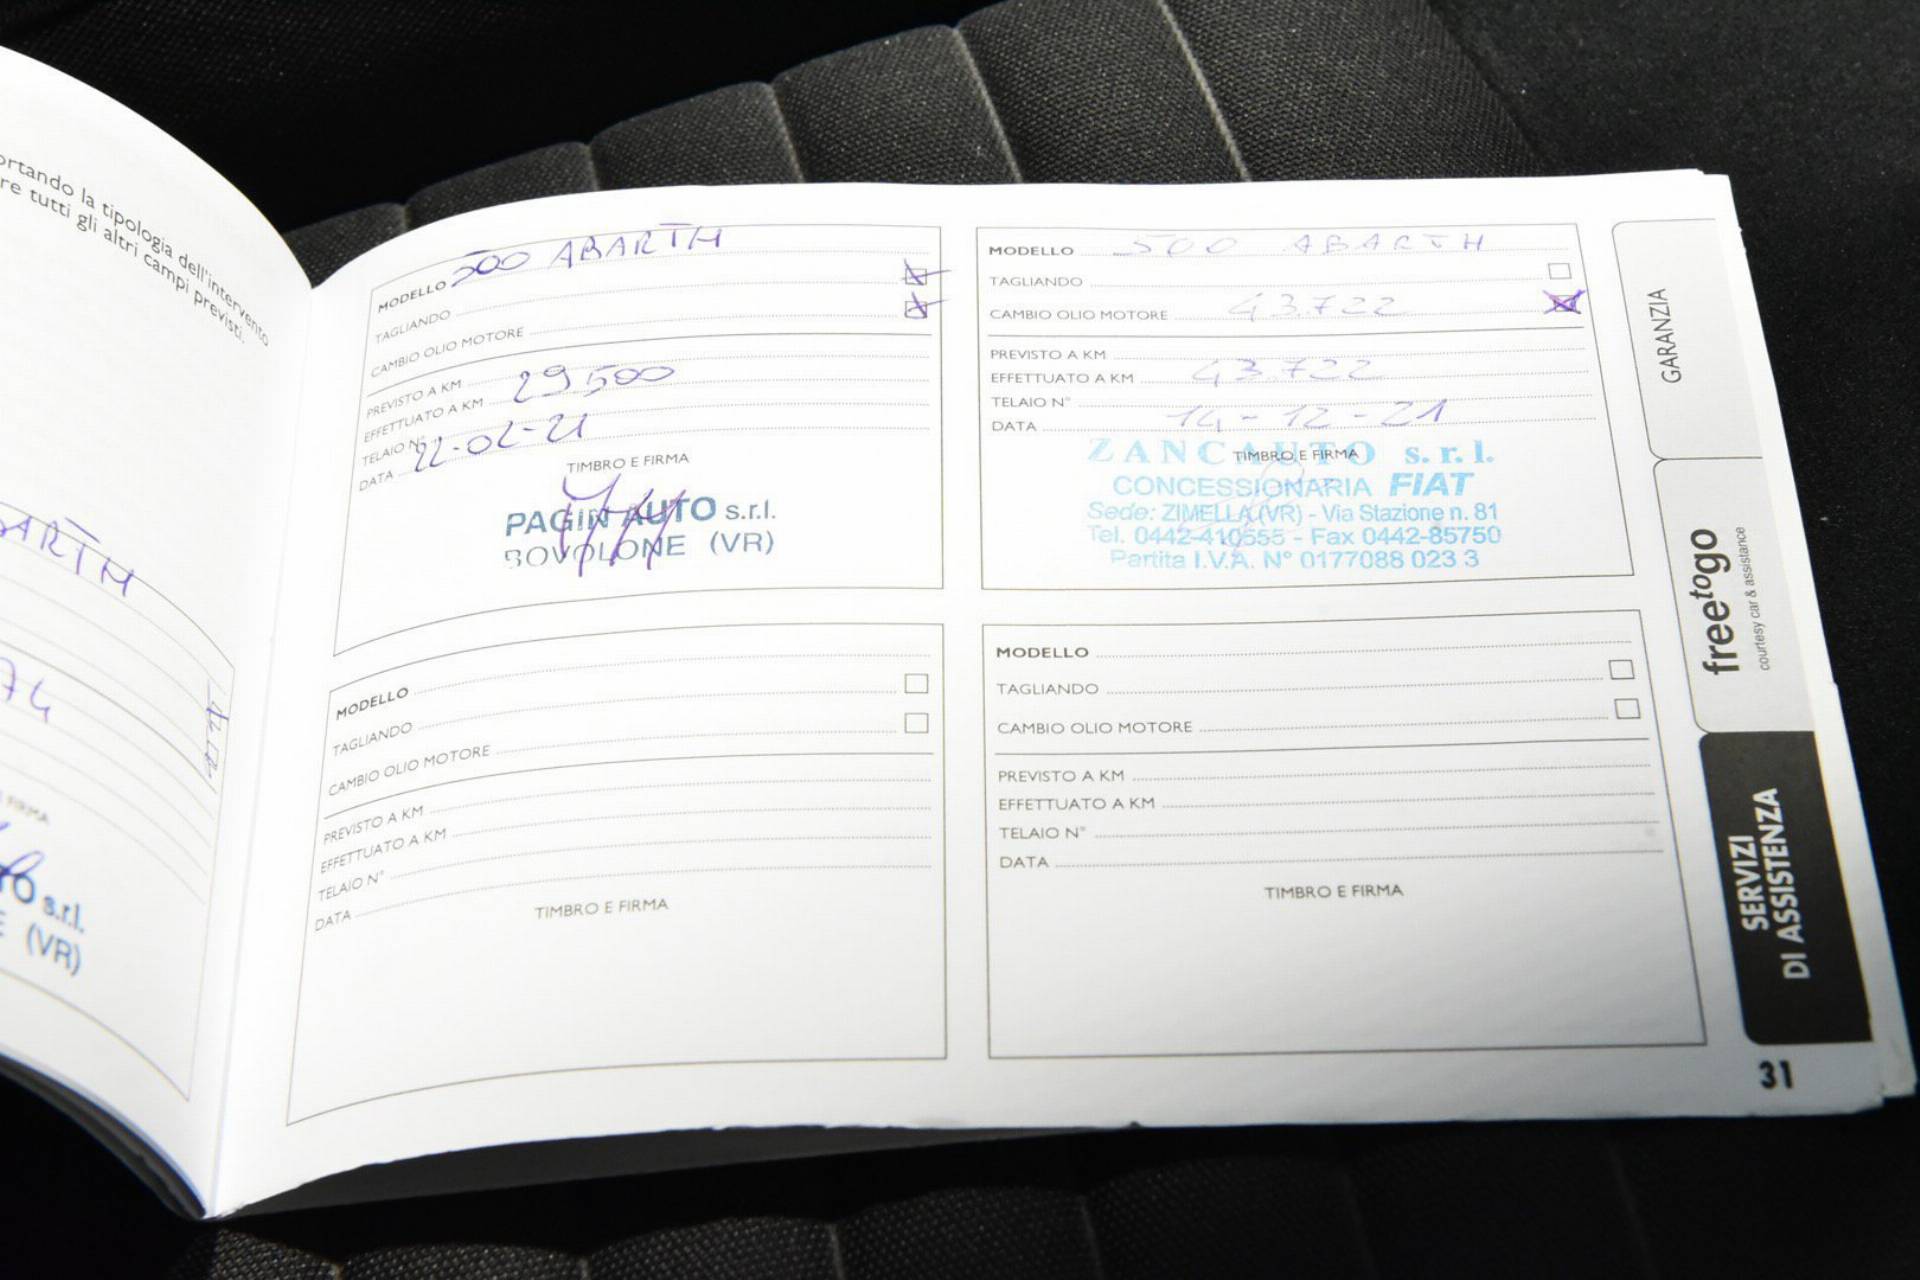 ortando la tipologia dell'intervento
re tutti gli altri campi previsti.
ARTH
74
FIRMA
s.r.l.
(VR)
MODELLO 500 ABARTH
TAGLIANDO
CAMBIO OLIO MOTORE
PREVISTO A KM
EFFETTUATO A KM 29500
TELAIO N°
DATA 22-02-21
TIMBRO E FIRMA
PAGIN AUTO s.r.l.
BOVOLONE (VR)
MODELLO 500 ABARTH
TAGLIANDO
CAMBIO OLIO MOTORE 43.722
PREVISTO A KM
EFFETTUATO A KM 43.722
TELAIO N°
DATA 14-12-21
TIMBRO E FIRMA
ZANCAUTO s.r.l.
CONCESSIONARIA FIAT
Sede: ZIMELLA (VR) - Via Stazione n. 81
Tel. 0442-410555 - Fax 0442-85750
Partita I.V.A. N° 0177088 023 3
MODELLO
TAGLIANDO
CAMBIO OLIO MOTORE
PREVISTO A KM
EFFETTUATO A KM
TELAIO N°
DATA
TIMBRO E FIRMA
MODELLO
TAGLIANDO
CAMBIO OLIO MOTORE
PREVISTO A KM
EFFETTUATO A KM
TELAIO N°
DATA
TIMBRO E FIRMA
GARANZIA
freetogo
courtesy car & assistance
SERVIZI
DI ASSISTENZA
31